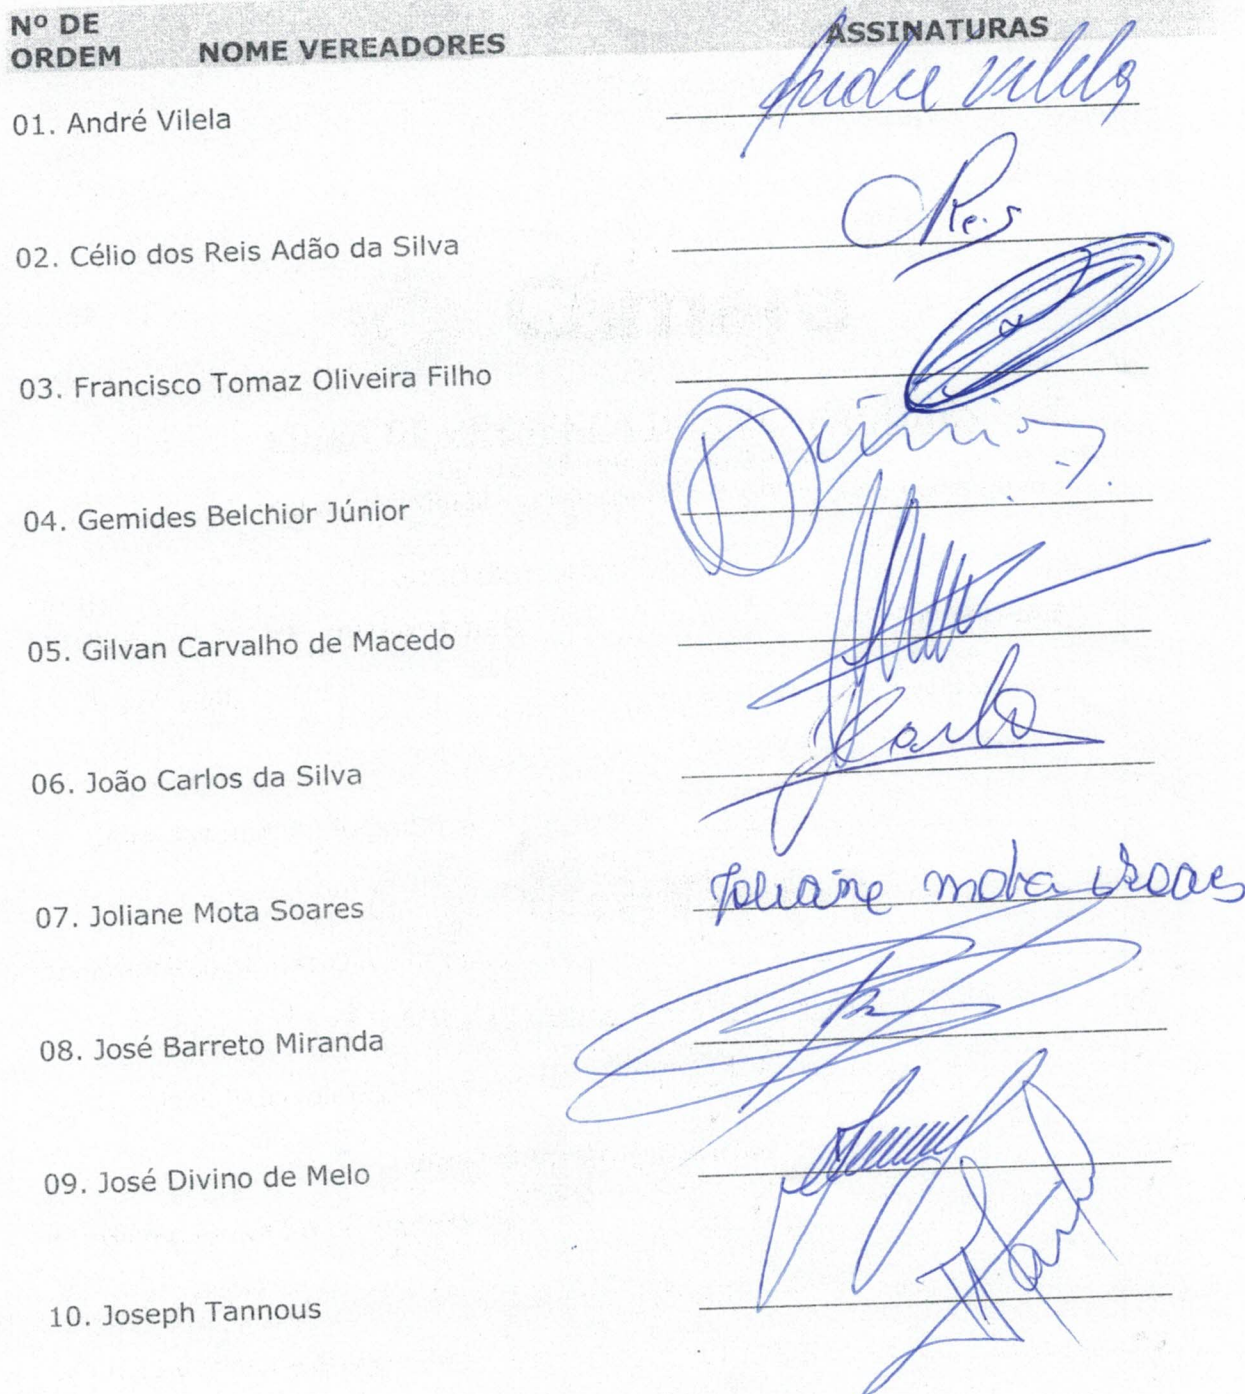 Nº DE
ORDEM NOME VEREADORES ASSINATURAS
01. André Vilela Andre Vilela
02. Célio dos Reis Adão da Silva CReis
03. Francisco Tomaz Oliveira Filho
04. Gemides Belchior Júnior
05. Gilvan Carvalho de Macedo
06. João Carlos da Silva
07. Joliane Mota Soares Joliane Mota Soares
08. José Barreto Miranda
09. José Divino de Melo
10. Joseph Tannous